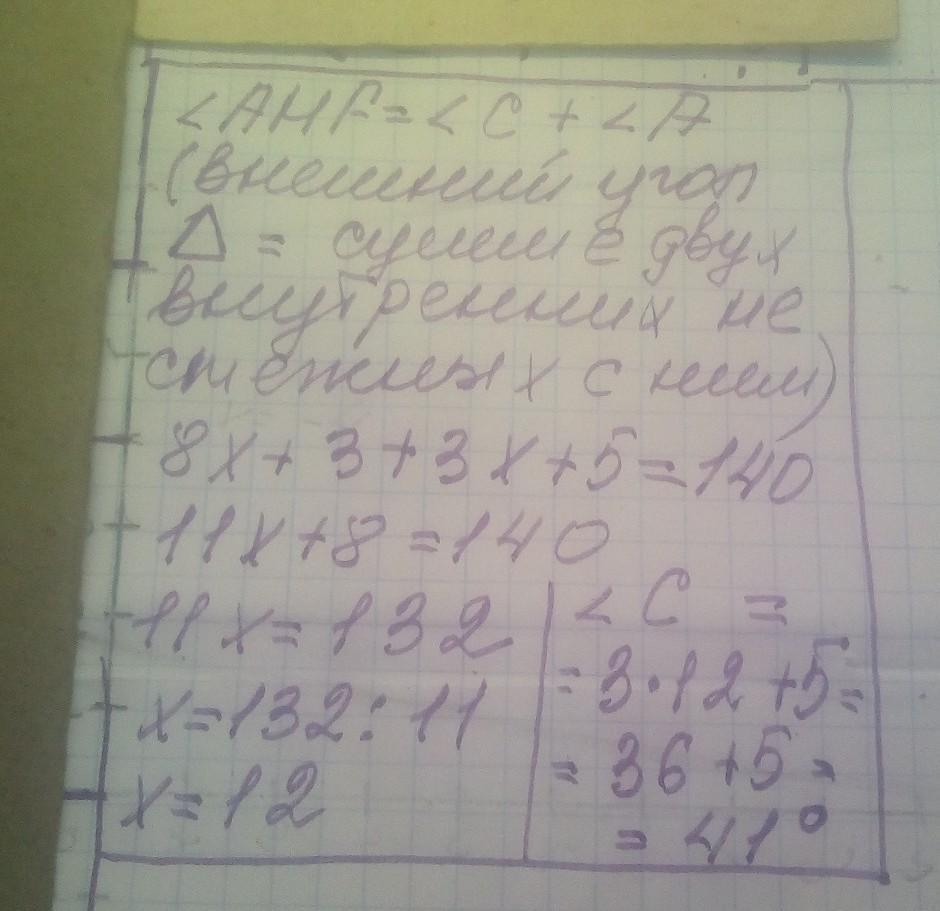 <AHF=<C+<A
(внешний угол
Δ = сумме двух
внутренних не
смежных с ним)
8x+3+3x+5=140
11x+8=140
11x=132
x=132:11
x=12
<C =
=3·12+5=
=36+5=
=41°